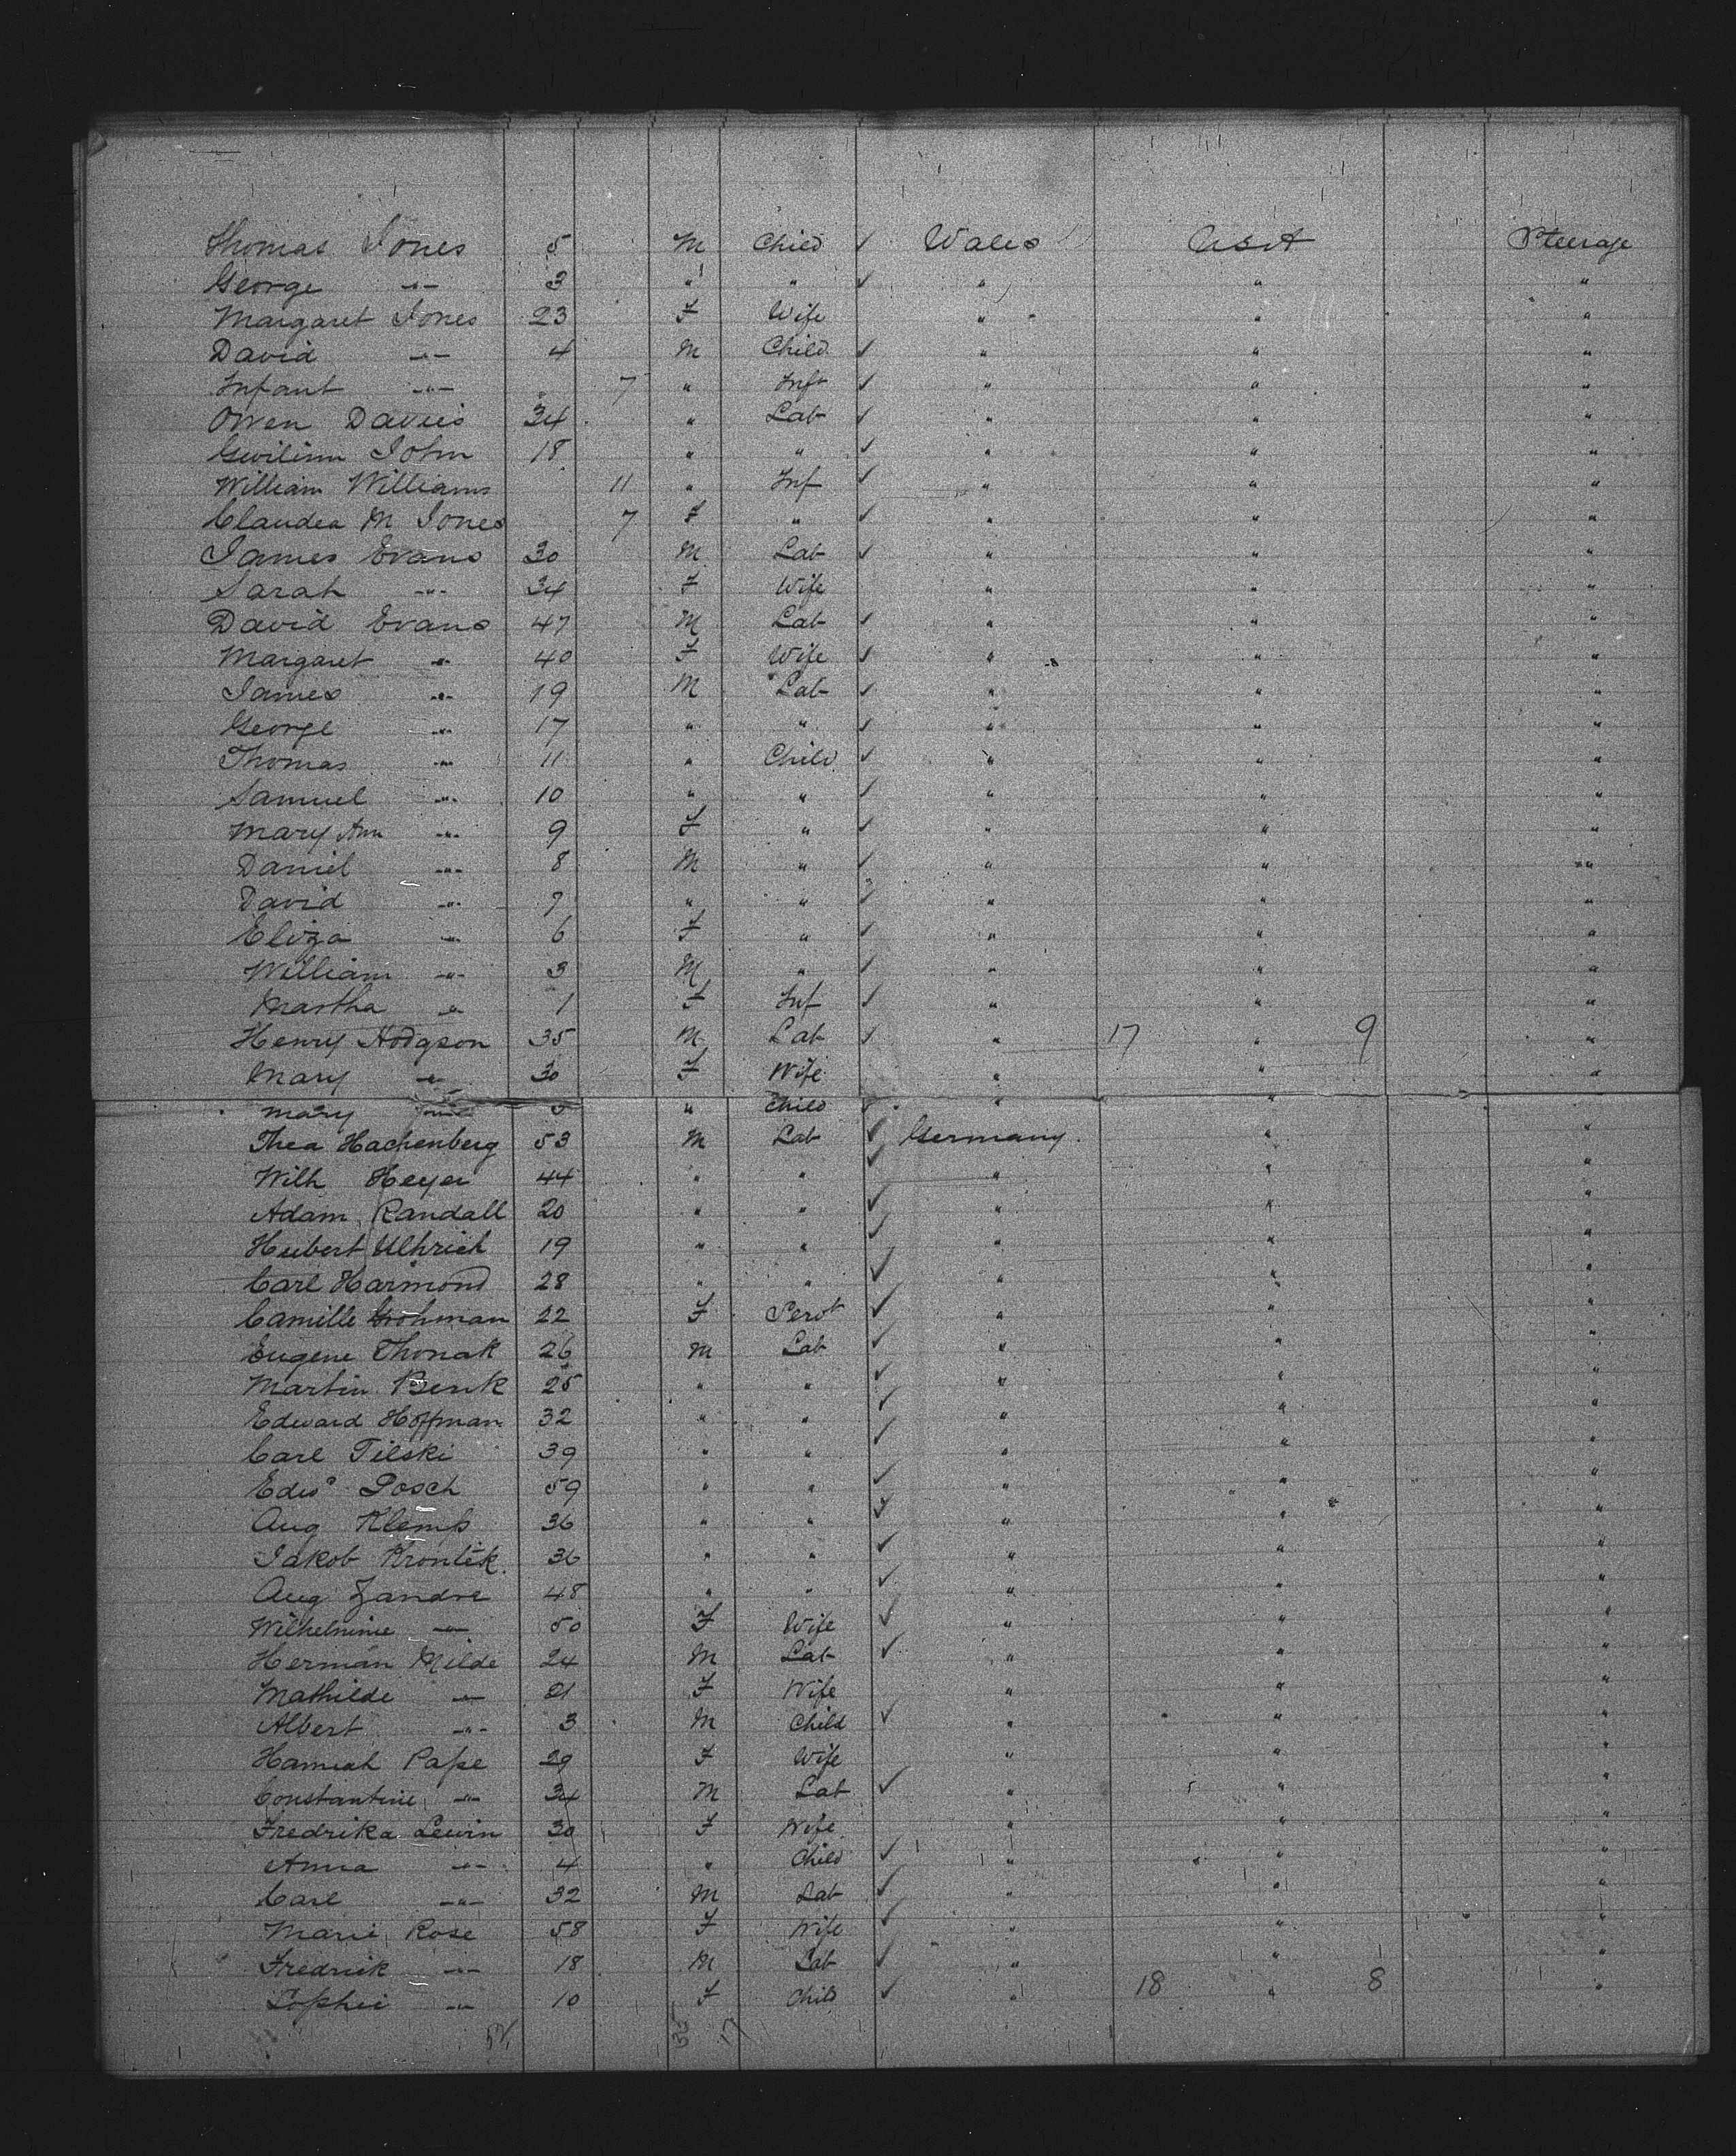 Thomas Jones 5 M Child ✓ Wales USA Steerage
George -"- 3 " " ✓ " " "
Margaret Jones 23 F Wife " " "
David -"- 4 M Child ✓ " " "
Infant -"- 7 " Inft ✓ " " "
Owen Davies 34 " Lab ✓ " " "
Gwilinn John 18 " " ✓ " " "
William Williams 11 " Inf ✓ " " "
Claudea M Jones 7 F " ✓ " " "
James Evans 30 M Lab ✓ " " "
Sarah -"- 34 F Wife " " "
David Evans 47 M Lab ✓ " " "
Margaret -"- 40 F Wife ✓ " " "
James -"- 19 M Lab ✓ " " "
George -"- 17 " " ✓ " " "
Thomas -"- 11 " Child ✓ " " "
Samuel -"- 10 " " ✓ " " "
Mary Ann -"- 9 F " ✓ " " "
Daniel -"- 8 M " ✓ " " "
David -"- 7 " " ✓ " " "
Eliza -"- 6 F " ✓ " " "
William -"- 3 M " ✓ " " "
Martha -"- 1 F Inf ✓ " " "
Henry Hodgson 35 M Lab ✓ " 17 " 9 "
Mary -"- 30 F Wife " " "
Mary " Child ✓ " "
Thea Hachenberg 53 M Lab ✓ Germany " "
Wilh Heyer 44 " " ✓ " " "
Adam Randall 20 " " ✓ " " "
Hubert Ulhrich 19 " " ✓ " " "
Carl Harmond 28 " " ✓ " " "
Camille Grohman 22 F Servt ✓ " " "
Eugene Thonak 26 M Lab ✓ " " "
Martin Benk 25 " " ✓ " " "
Edward Hoffman 32 " " ✓ " " "
Carl Tilski 39 " " ✓ " " "
Edwd Posch 59 " " ✓ " " "
Aug Klemp 36 " " ✓ " " "
Jakob Krontek 36 " " ✓ " " "
Aug Zandre 48 " " ✓ " " "
Wilhelmine -"- 50 F Wife ✓ " " "
Herman Milde 24 M Lab ✓ " " "
Mathilde -"- 21 F Wife " " "
Albert -"- 3 M Child ✓ " " "
Hannah Pape 29 F Wife " " "
Constantine -"- 34 M Lab ✓ " " "
Fredrika Lewin 30 F Wife " " "
Anna -"- 4 " Child ✓ " " "
Carl -"- 32 M Lab ✓ " " "
Marie Rose 58 F Wife ✓ " " "
Fredrick -"- 18 M Lab ✓ " " "
Sophie -"- 10 F Child ✓ " 18 " 8 "
52 35 17